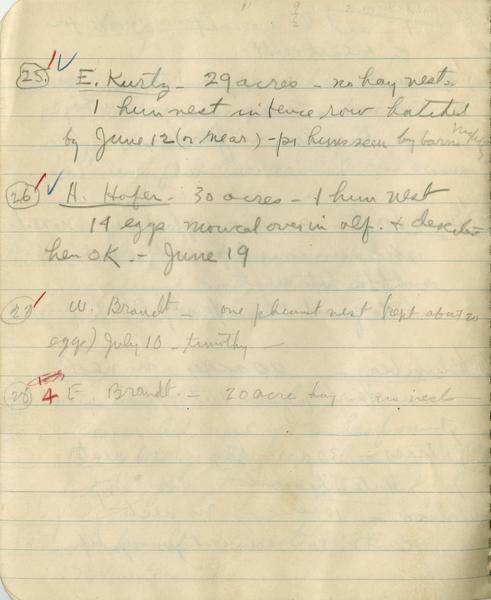 25. E. Kurtz - 29 acres - no hay nests.
1 hun nest in fence row hatched
by June 12 (or near) - pr huns seen by barn
26 H. Hofer - 30 acres - 1 hun nest
14 eggs mowed over in alf. & deserted
hen OK. - June 19
27 W. Brandt - one pheasant nest (kept about 20
eggs) July 10 - timothy -
28 4 E. Brandt - 20 acre hay no nests